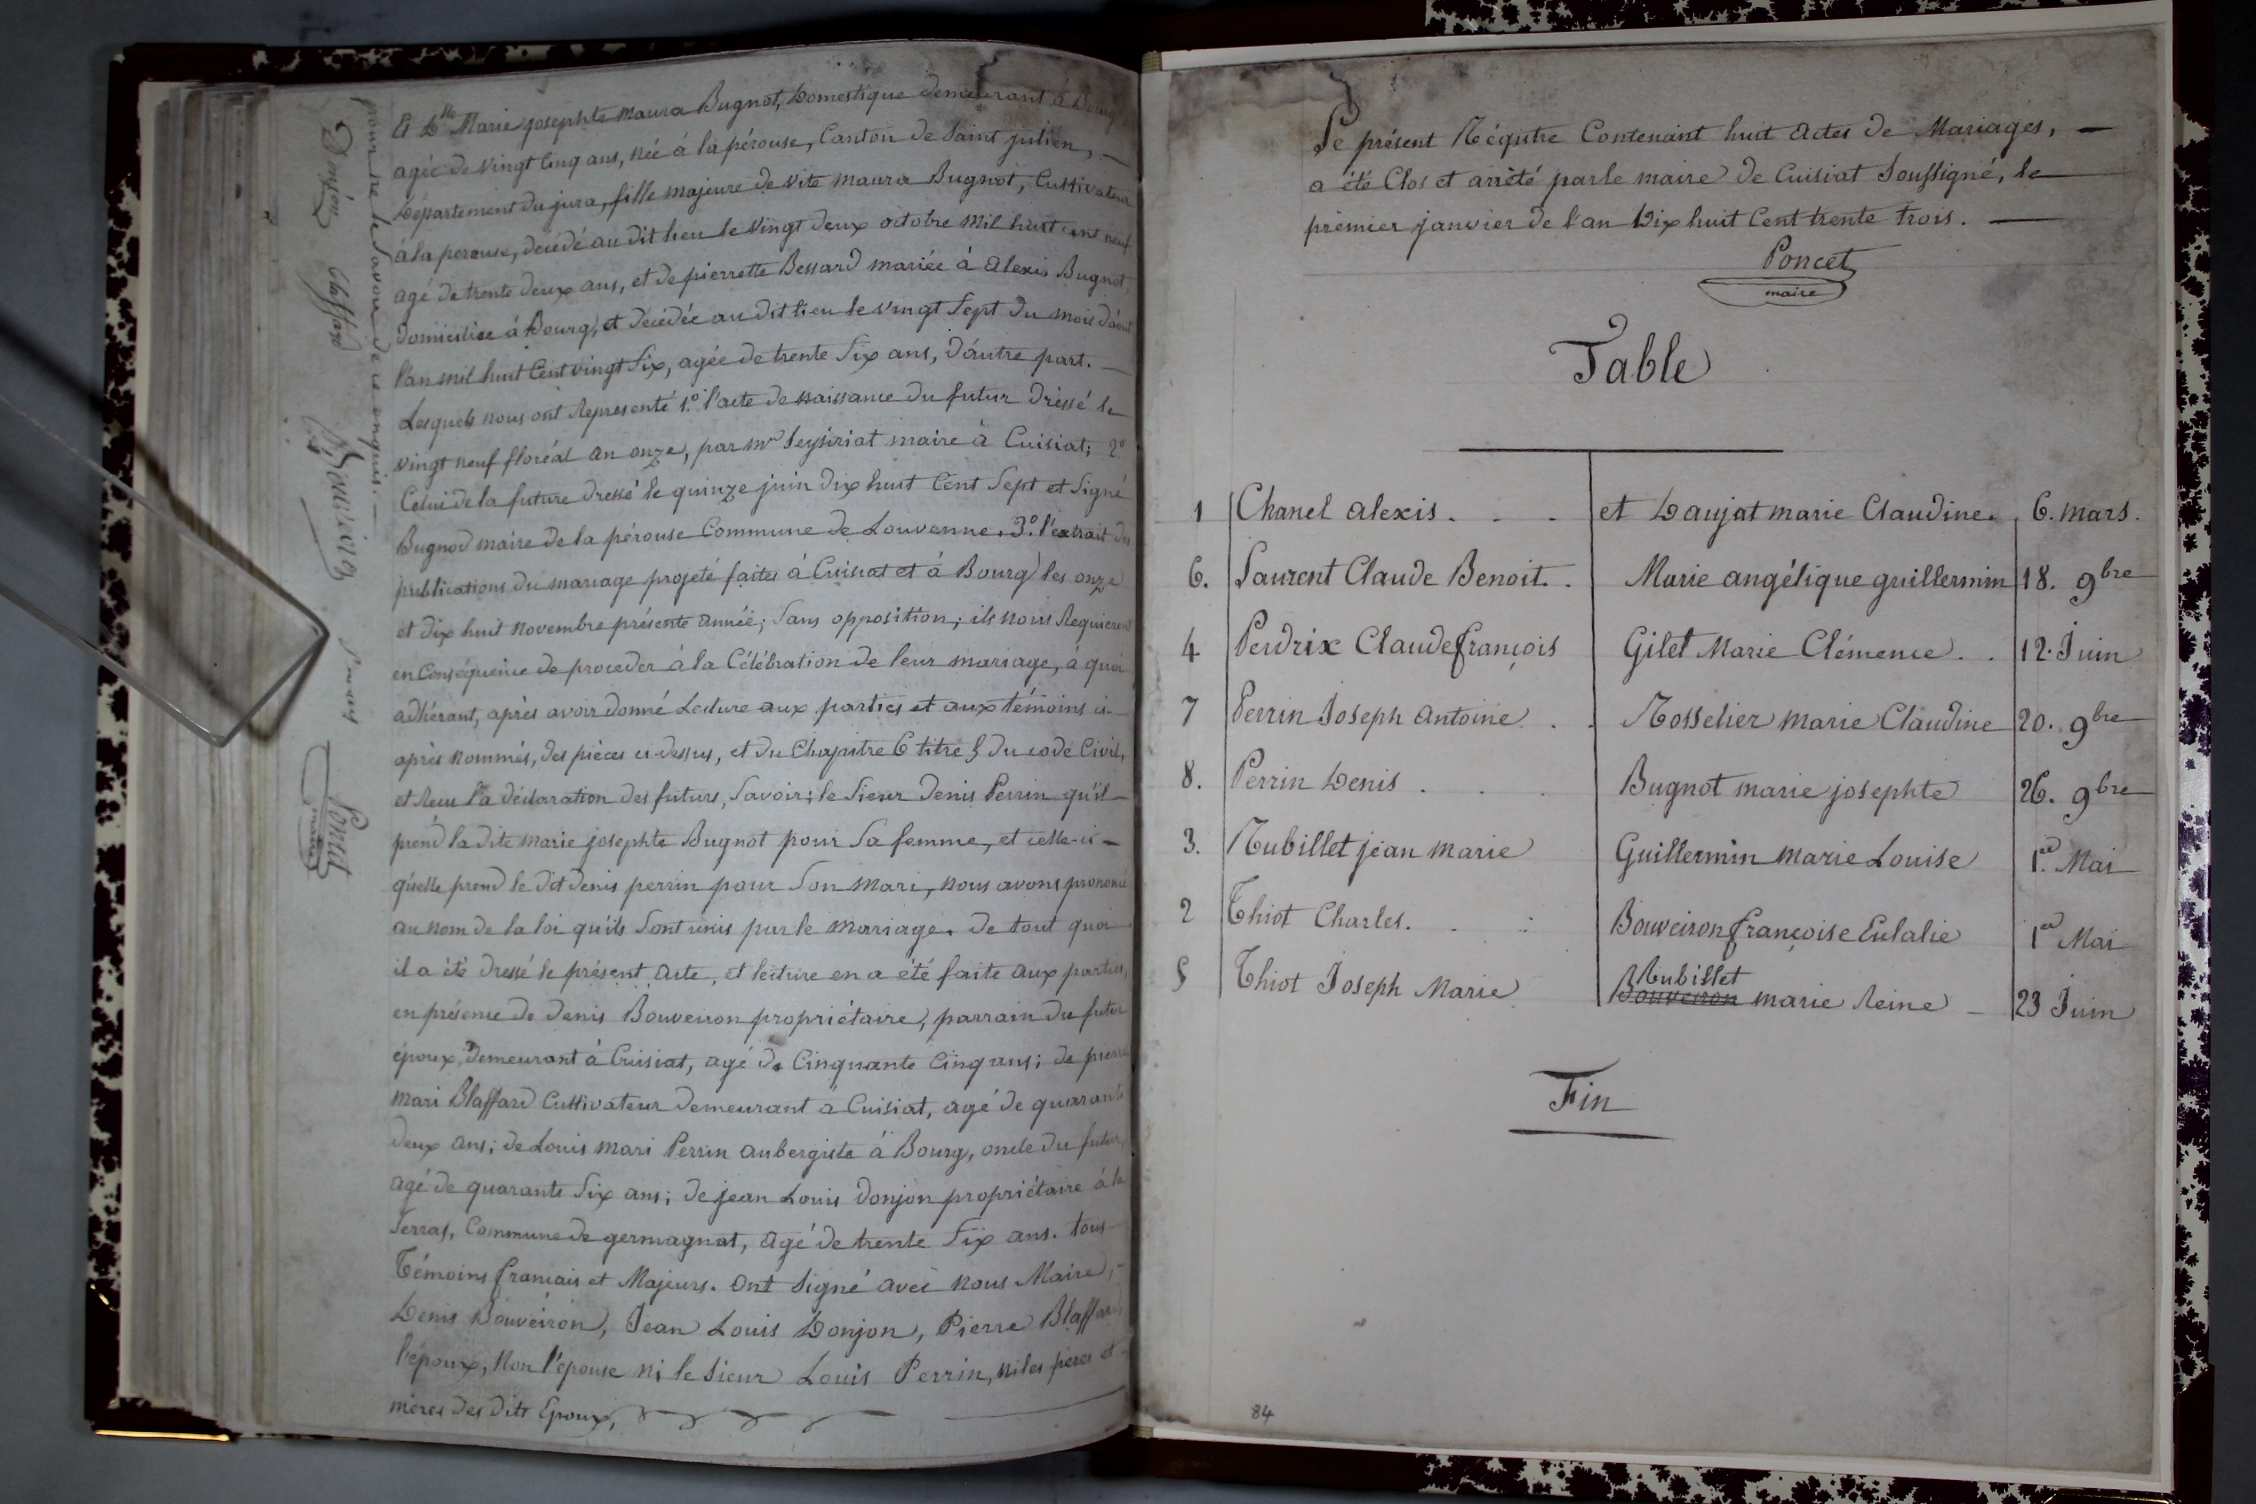 Et Dlle Marie josephte maura Bugnot, Domestique demeurant à Bourg
agée de vingt Cinq ans, née à la pérouse, Canton de Saint julien, —
Département du jura, fille majeure de vite maura Bugnot, Cultivateur
à la perouse, decédé au dit lieu le vingt deux octobre mil huit cent neuf
agé de trente deux ans, et de pierrette Bessard mariée à Alexis Bugnot,
domiciliée à Bourg, et decédée au dit lieu le vingt Sept du mois d'août
l'an mil huit Cent vingt Six, agée de trente Six ans, d'autre part. —
Lesquels nous ont Representé 1.º l'acte de naissance du futur dressé le
vingt neuf floréal an onze, par mr Seysiriat maire à Cuisiat; 2º
Celui de la future dressé le quinze juin dix huit Cent Sept et Signé
Bugnod maire de la pérouse Commune de Louvenne. 3º. l'extrait des
publications du mariage projeté faites à Cuisiat et à Bourg les onze
et dix huit novembre présente année; Sans opposition; ils nous Requierent
en Conséquence de proceder à la Célébration de leur mariage, à quoi
adhérant, après avoir donné Lecture aux parties et aux témoins ci-
après nommés, des pièces ci-dessus, et du Chapitre 6 titre 5 du code Civil,
et Recu la déclaration des futurs, Savoir; le Sieur Denis Perrin qu'il —
prend la dite marie josephte Bugnot pour Sa femme, et celle-ci —
qu'elle prend le dit denis perrin pour Son mari, nous avons prononcé
au nom de la loi qu'ils Sont unis par le mariage. de tout quoi
il a été dressé le présent acte, et lecture en a été faite aux parties,
en présence de Denis Bouveiron propriétaire, parrain du futur
époux, demeurant à Cuisiat, agé de Cinquante Cinq ans; de pierre
mari Blaffard Cultivateur demeurant à Cuisiat, agé de quarante
deux ans; de Louis mari Perrin aubergiste à Bourg, oncle du futur,
agé de quarante Six ans; de jean Louis Donjon propriétaire à la
Serraz, Commune de germagnat, agé de trente Six ans. tous
Témoins francais et Majeurs. Ont Signé avec nous Maire, —
Denis Bouveiron, Jean Louis Donjon, Pierre Blaffard
l'époux, Non l'épouse ni le Sieur Louis Perrin, ni les pères et
mères des dits Epoux,
pour ne le Savoir de ce enquis. —
Donjon Blaffard D. Bouveiron Perrin Poncet
maire
Le présent Régistre Contenant huit Actes de Mariages, —
a été Clos et arrêté par le maire de Cuisiat Soussigné, le —
premier janvier de l'an Dix huit Cent trente trois. —
Poncet
maire
Table
1 Chanel alexis . . . et Daujat marie Claudine. 6. mars.
6. Laurent Claude Benoit. . Marie angélique guillermin 18. 9bre
4 Perdrix Claude françois Gilet Marie Clémence . . 12. Juin
7 Perrin Joseph Antoine . . Rosselier marie Claudine 20. 9bre
8. Perrin Denis . . . Bugnot marie josephte 26. 9bre
3. Rubillet jean marie Guillermin marie Louise 1er Mai
2 Thiot Charles. . . Bouveiron françoise Eulalie 1er Mai
5 Thiot Joseph Marie Rubillet Bouveiron marie Reine — 23 Juin
Fin
84